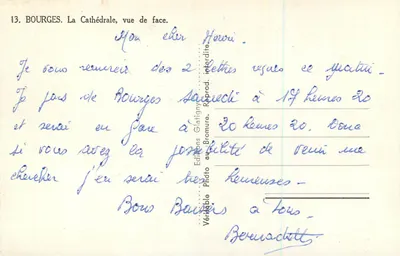 13. BOURGES. La Cathédrale, vue de face.
Mon cher
Je vous remercie des 2 lettres reçues ce matin.
Je pars de Bourges samedi à 17 heures 20
et serai en gare à 20 heures 20. Donc
si vous avez la possibilité de venir me
chercher j'en serai très heureuse.
Bons Baisers à tous.
Bernadette
Véritable Photo au Bromure. Reprod. interdite.